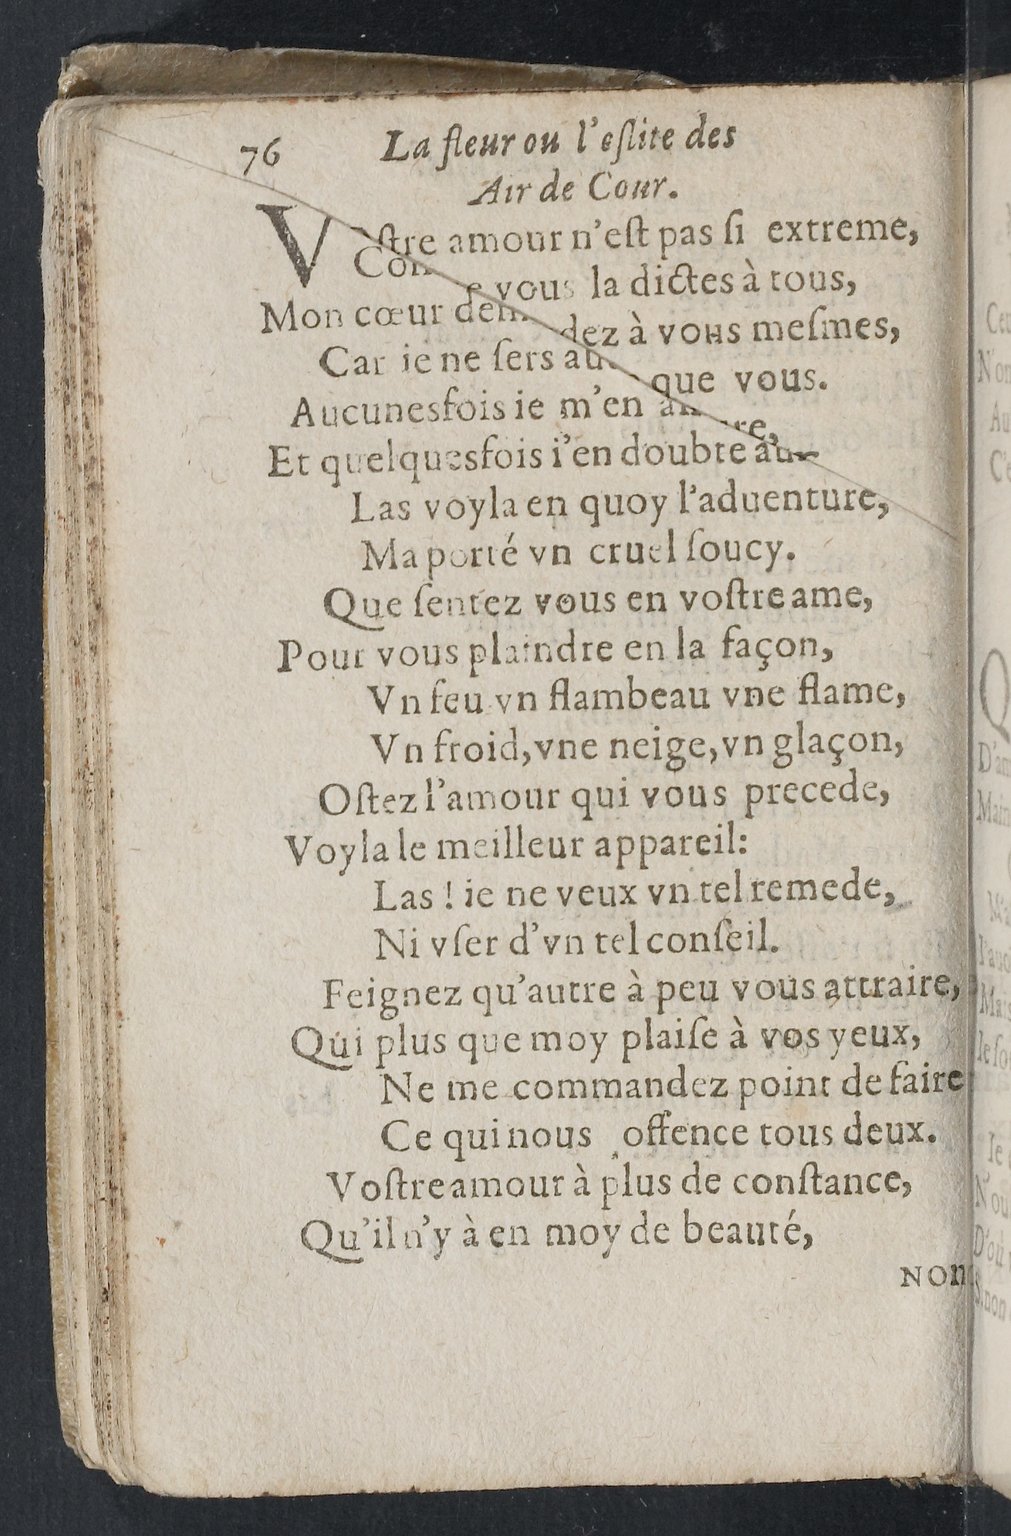 76 La fleur ou l'eſlite des
Air de Cour.
Voſtre amour n'eſt pas ſi extreme,
vous la dictes à tous,
Mon cœur à vous meſmes,
Car ie ne ſers que vous.
Aucunesfois ie m'en
Et quelquesfois i'en doubte
Las voyla en quoy l'aduenture,
Ma porté vn cruel ſoucy.
Que ſentez vous en voſtre ame,
Pour vous plaindre en la façon,
Vn feu vn flambeau vne flame,
Vn froid, vne neige, vn glaçon,
Oſtez l'amour qui vous precede,
Voyla le meilleur appareil:
Las ! ie ne veux vn tel remede,
Ni vſer d'vn tel conſeil.
Feignez qu'autre à peu vous attraire,
Qui plus que moy plaiſe à vos yeux,
Ne me commandez point de faire
Ce qui nous offence tous deux.
Voſtre amour à plus de conſtance,
Qu'il n'y à en moy de beauté,
NON